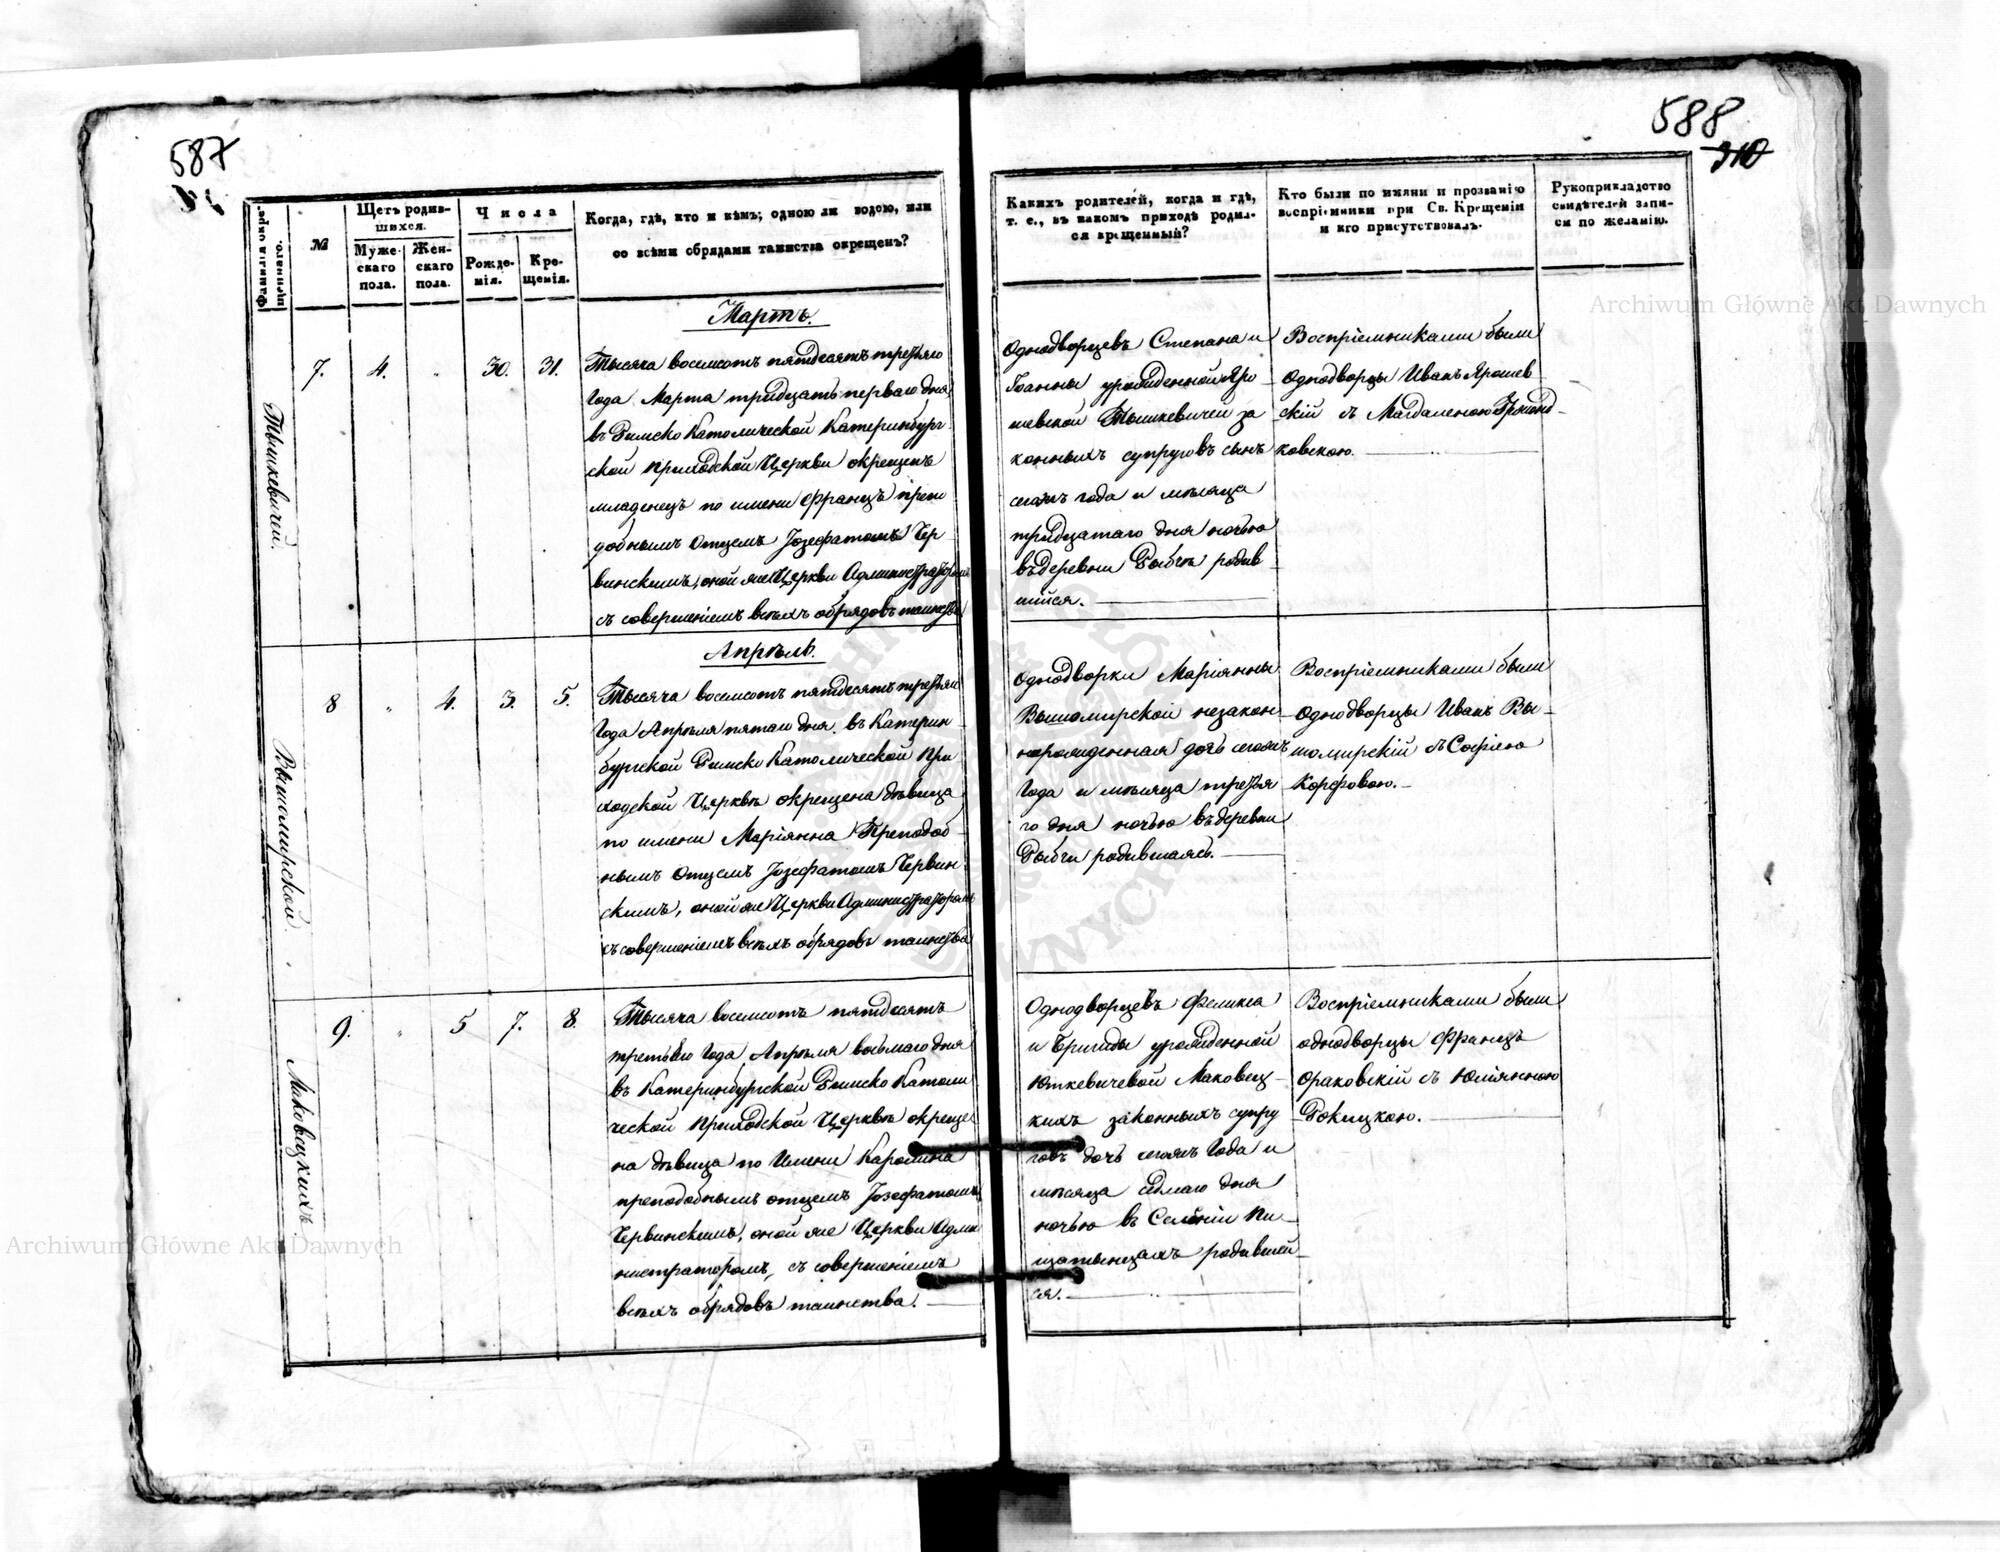 587
588
310
Фамилія окре-
щеннаго.
№
Щетъ родив-
шихся.
Муже-
скаго
пола.
Жен-
скаго
пола.
Числа
Рожде-
нія.
Кре-
щенія.
Когда, гдѣ, кто и кѣмъ; одною ли водою, или
со всѣми обрядами таинства окрещенъ?
Каких родителей, когда и гдѣ,
т. е., въ какомъ приходѣ родил-
ся крещенный?
Кто были по имяни и прозванію
воспріемники при Св. Крещеніи
и кто присутствовалъ.
Рукоприкладство
свидѣтелей запи-
си по желанію.
Мартъ.
Тышкевичей.
7. 4. „ 30. 31.
Тысяча восемсотъ пятдесятъ третьяго
года Марта тридцать перваго дня
въ Римско Католической Катеринбург
ской приходской Церкви окрещенъ
младенецъ по имени Францъ препо
добнымъ Отцемъ Іозефатомъ Чер
винскимъ, оной же Церкви Администраторомъ
съ совершеніемъ всѣхъ обрядовъ таинства
Однодворцевъ Степана и
Іоанны урожденной Яро
шевской Тышкевичей за
конныхъ супруговъ сынъ
сегожъ года и мѣсяца
тридцатаго дня ночью
въ деревни Рыбче родив
шійся.
Воспріемниками были
Однодворцы Иванъ Ярошев
скій съ Магдаленою
ковскою.
Апрѣль.
Вышомирской
8 „ 4. 3. 5.
Тысяча восемсотъ пятдесятъ третьяго
года Апрѣля пятаго дня въ Катерин
бургской Римско Католической При
ходской Церквѣ окрещена дѣвица
по имени Маріянна Преподоб
нымъ Отцемъ Іозефатомъ Червин
скимъ, оной же Церкви Администраторомъ
съ совершеніемъ всѣхъ обрядовъ таинства
Однодворки Маріянны
Вышомирской незакон
норожденная дочь сегожъ
года и мѣсяца третья
го дня ночью въ деревни
Рыбчи родившаясь.
Воспріемниками были
Однодворцы Иванъ Вы-
шомирскій съ Софіею
Корсфовою.
Маковецкихъ
9. „ 5 7. 8.
Тысяча восемсотъ пятдесятъ
третьяго года Апрѣля восьмаго дня
въ Катеринбургской Римско Католи
ческой Приходской Церквѣ окреще
на дѣвица по Имени Каролина
преподобнымъ отцемъ Іозефатомъ
Червинскимъ, оной же Церкви Адми
нистраторомъ, съ совершеніемъ
всѣхъ обрядовъ таинства.
Однодворцевъ Феликса
и Бригиды урожденной
Юткевичевой Маковец-
кихъ законныхъ супру
говъ дочь сегожъ года и
мѣсяца седмаго дня
ночью въ Селеніи Пи
щатынцахъ родившей
ся.
Воспріемниками были
однодворцы Францъ
Ораковскій съ Юліянною
Рокицкою.
Archiwum Główne Akt Dawnych
Archiwum Główne Akt Dawnych